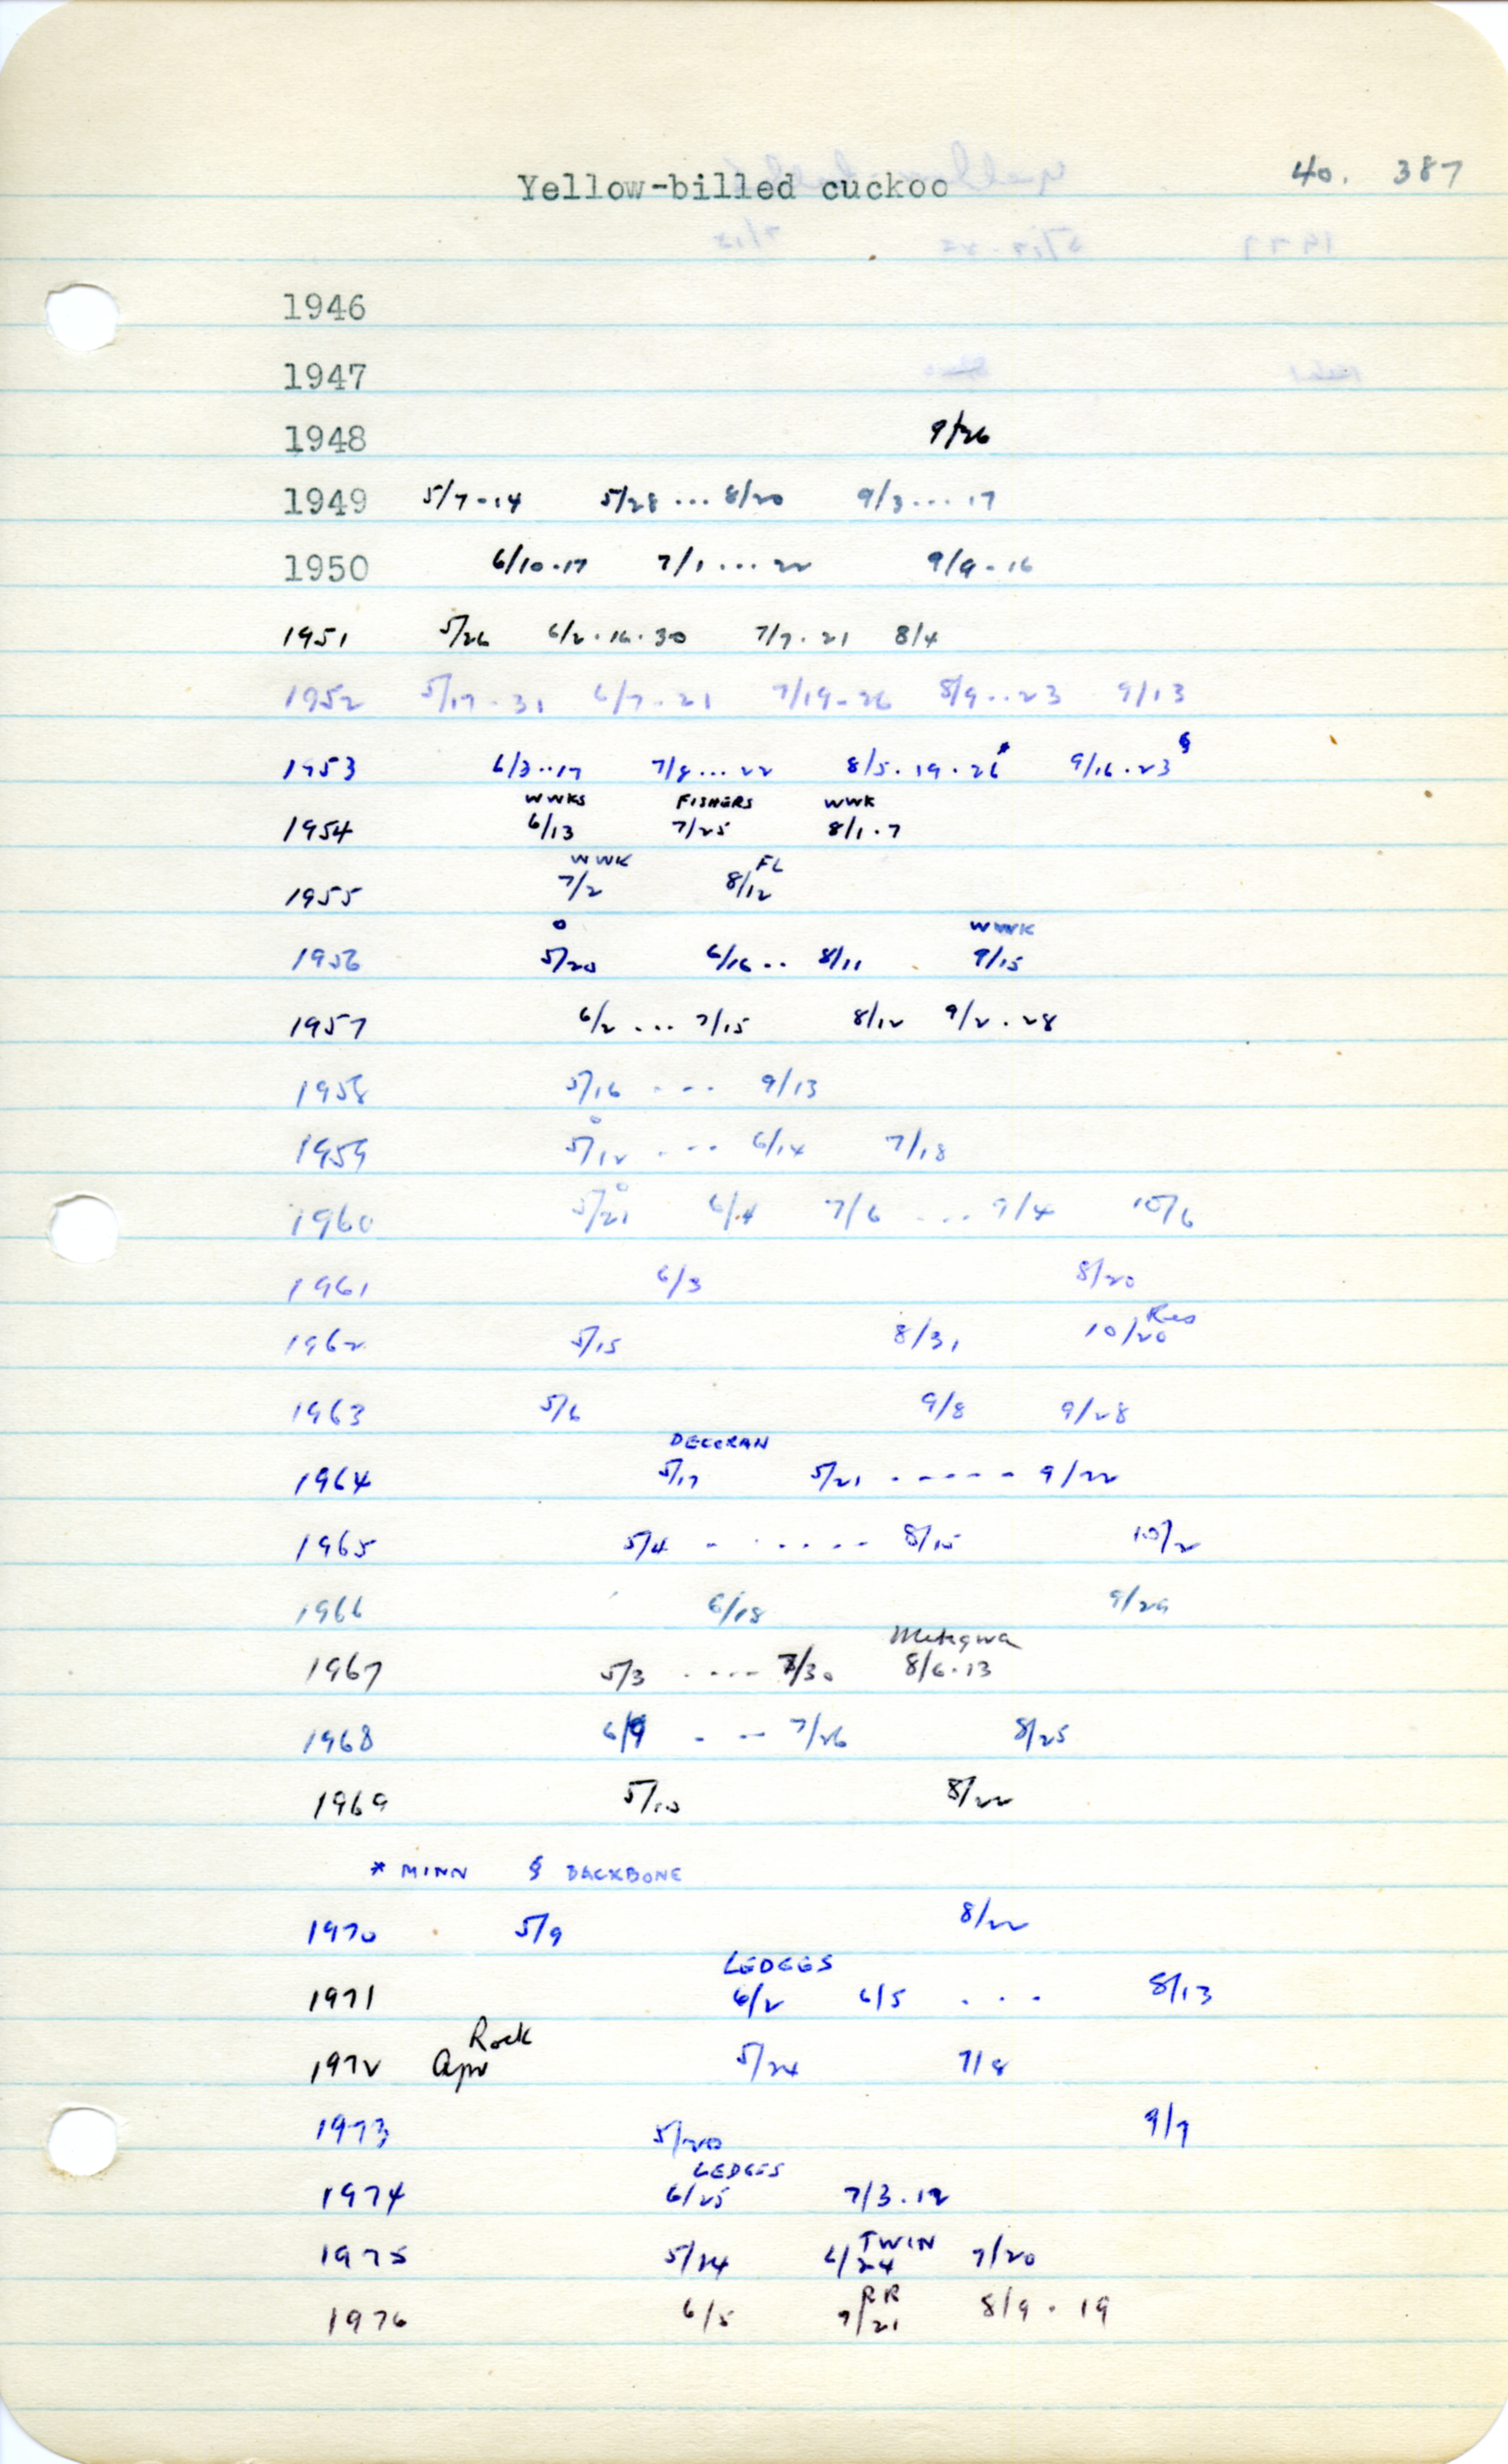 Yellow-billed cuckoo 40. 387
1946
1947
1948 9/26
1949 5/7-14 5/28 ... 8/20 9/3 ... 17
1950 6/10-17 7/1 ... 22 9/9-16
1951 5/26 6/2.16.30 7/7.21 8/4
1952 5/17-31 6/7-21 7/19-26 8/9..23 9/13
1953 6/3..17 7/8...22 8/5.19.26* 9/16.23§
WWKS FISHERS WWK
1954 6/13 7/25 8/1.7
WWK FL
1955 7/2 8/12
o WWK
1956 5/20 6/16.. 8/11 9/15
1957 6/2 ... 7/15 8/12 9/2.28
1958 5/16 --- 9/13
o
1959 5/12 ---- 6/14 7/18
o
1960 5/21 6/4 7/6 ... 9/4 10/6
1961 6/3 8/20
Res
1962 5/15 8/31 10/20
1963 5/6 9/8 9/28
DECORAH
1964 5/17 5/21 ------ 9/22
1965 5/4 ------- 8/15 10/2
1966 6/18 9/29
1967 5/3 ---- 7/30 8/6.13
1968 6/9 --- 7/26 8/25
1969 5/10 8/22
* MINN § BACKBONE
1970 5/9 8/22
LEDGES
1971 6/2 6/5 ... 8/13
Rock
1972 Apr 5/24 7/8
1973 5/20 9/7
LEDGES
1974 6/25 7/3.12
TWIN
1975 5/24 6/24 7/20
RR
1976 6/5 7/21 8/9.19